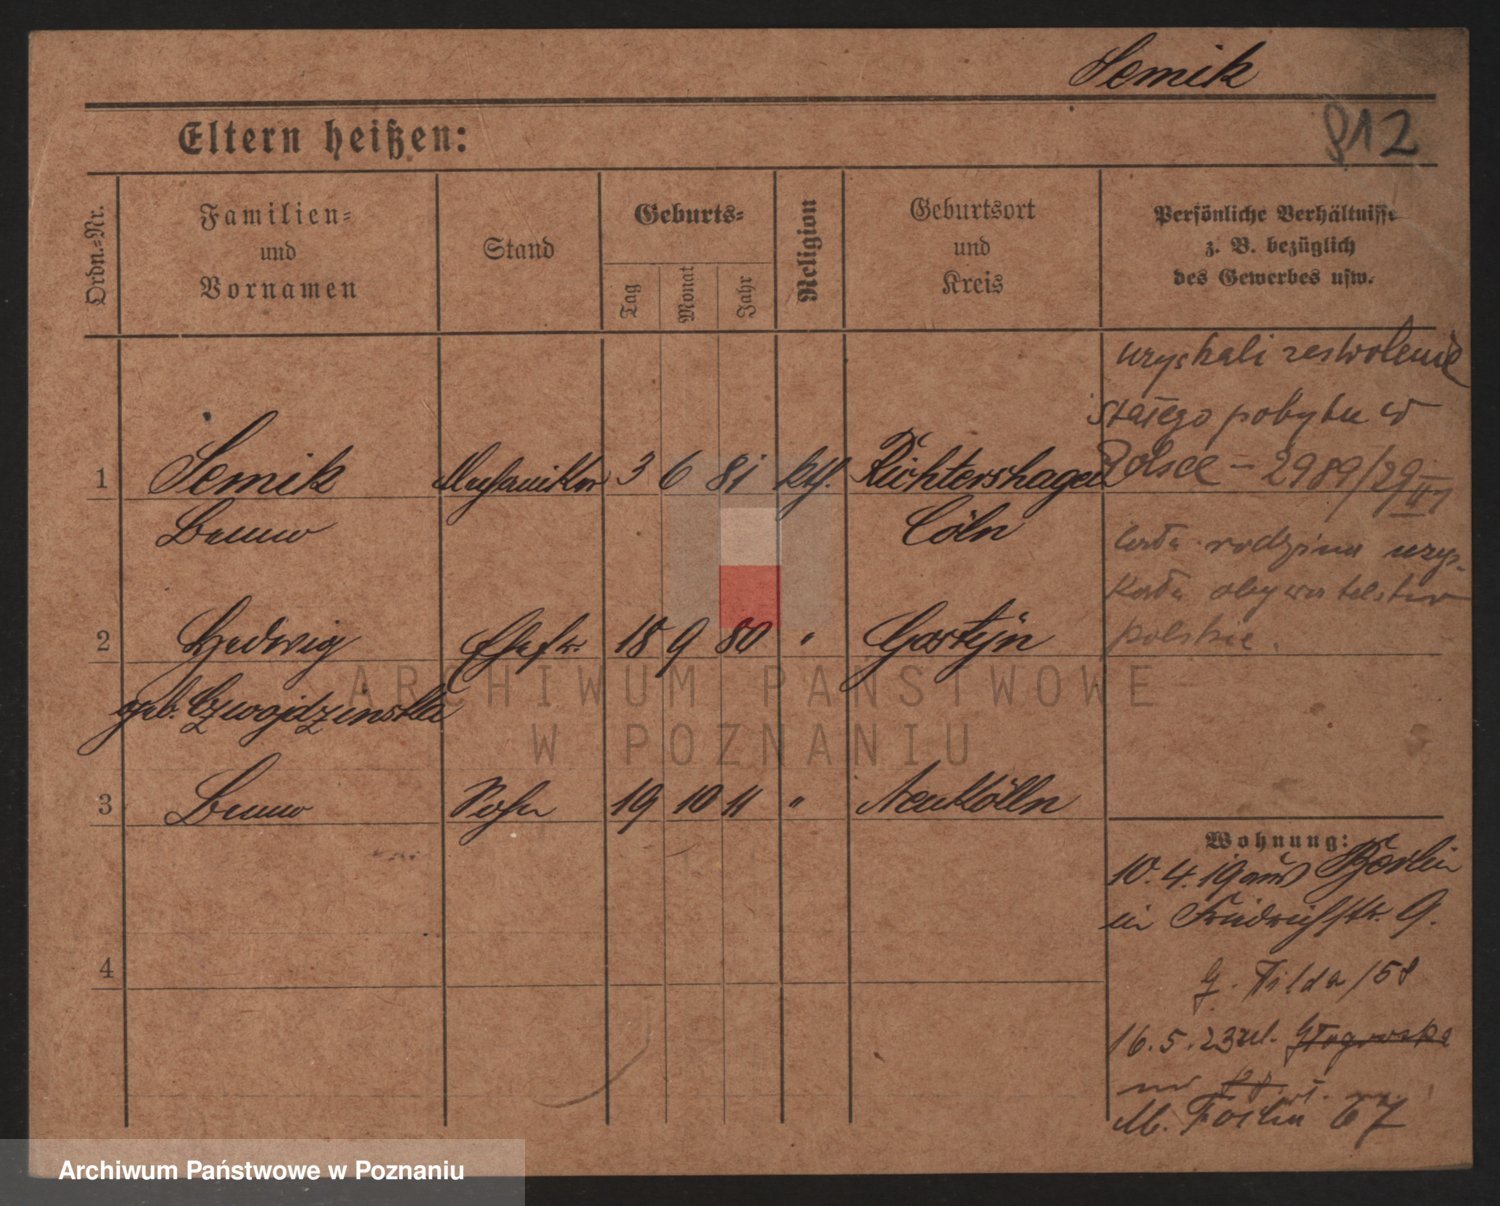 Semik
812
Eltern heißen:
Ordn.=Nr.
Familien=
und
Vornamen
Stand
Geburts=
Tag
Monat
Jahr
Religion
Geburtsort
und
Kreis
Persönliche Verhältnisse
z. B. bezüglich
des Gewerbes usw.
uzyskali zezwolenie
stałego pobytu w
Polsce – 2989/29
1 Semik Mechaniker 3 6 81 kth. Richtershagen
Bruno Cöln
cała rodzina uzys-
kała obywatelstwo
polskie.
2 Hedwig Ehefr. 18 9 80 " Gostyn
geb. Czwojdzinska
3 Bruno Sohn 19 10 11 " Neukölln
4
Wohnung:
10.4.19 aus Berlin
in Friedrichstr. 9.
G. Wilda 158
16.5.23 ul. Głogowska
M. Focha 67
ARCHIWUM PAŃSTWOWE
W POZNANIU
Archiwum Państwowe w Poznaniu